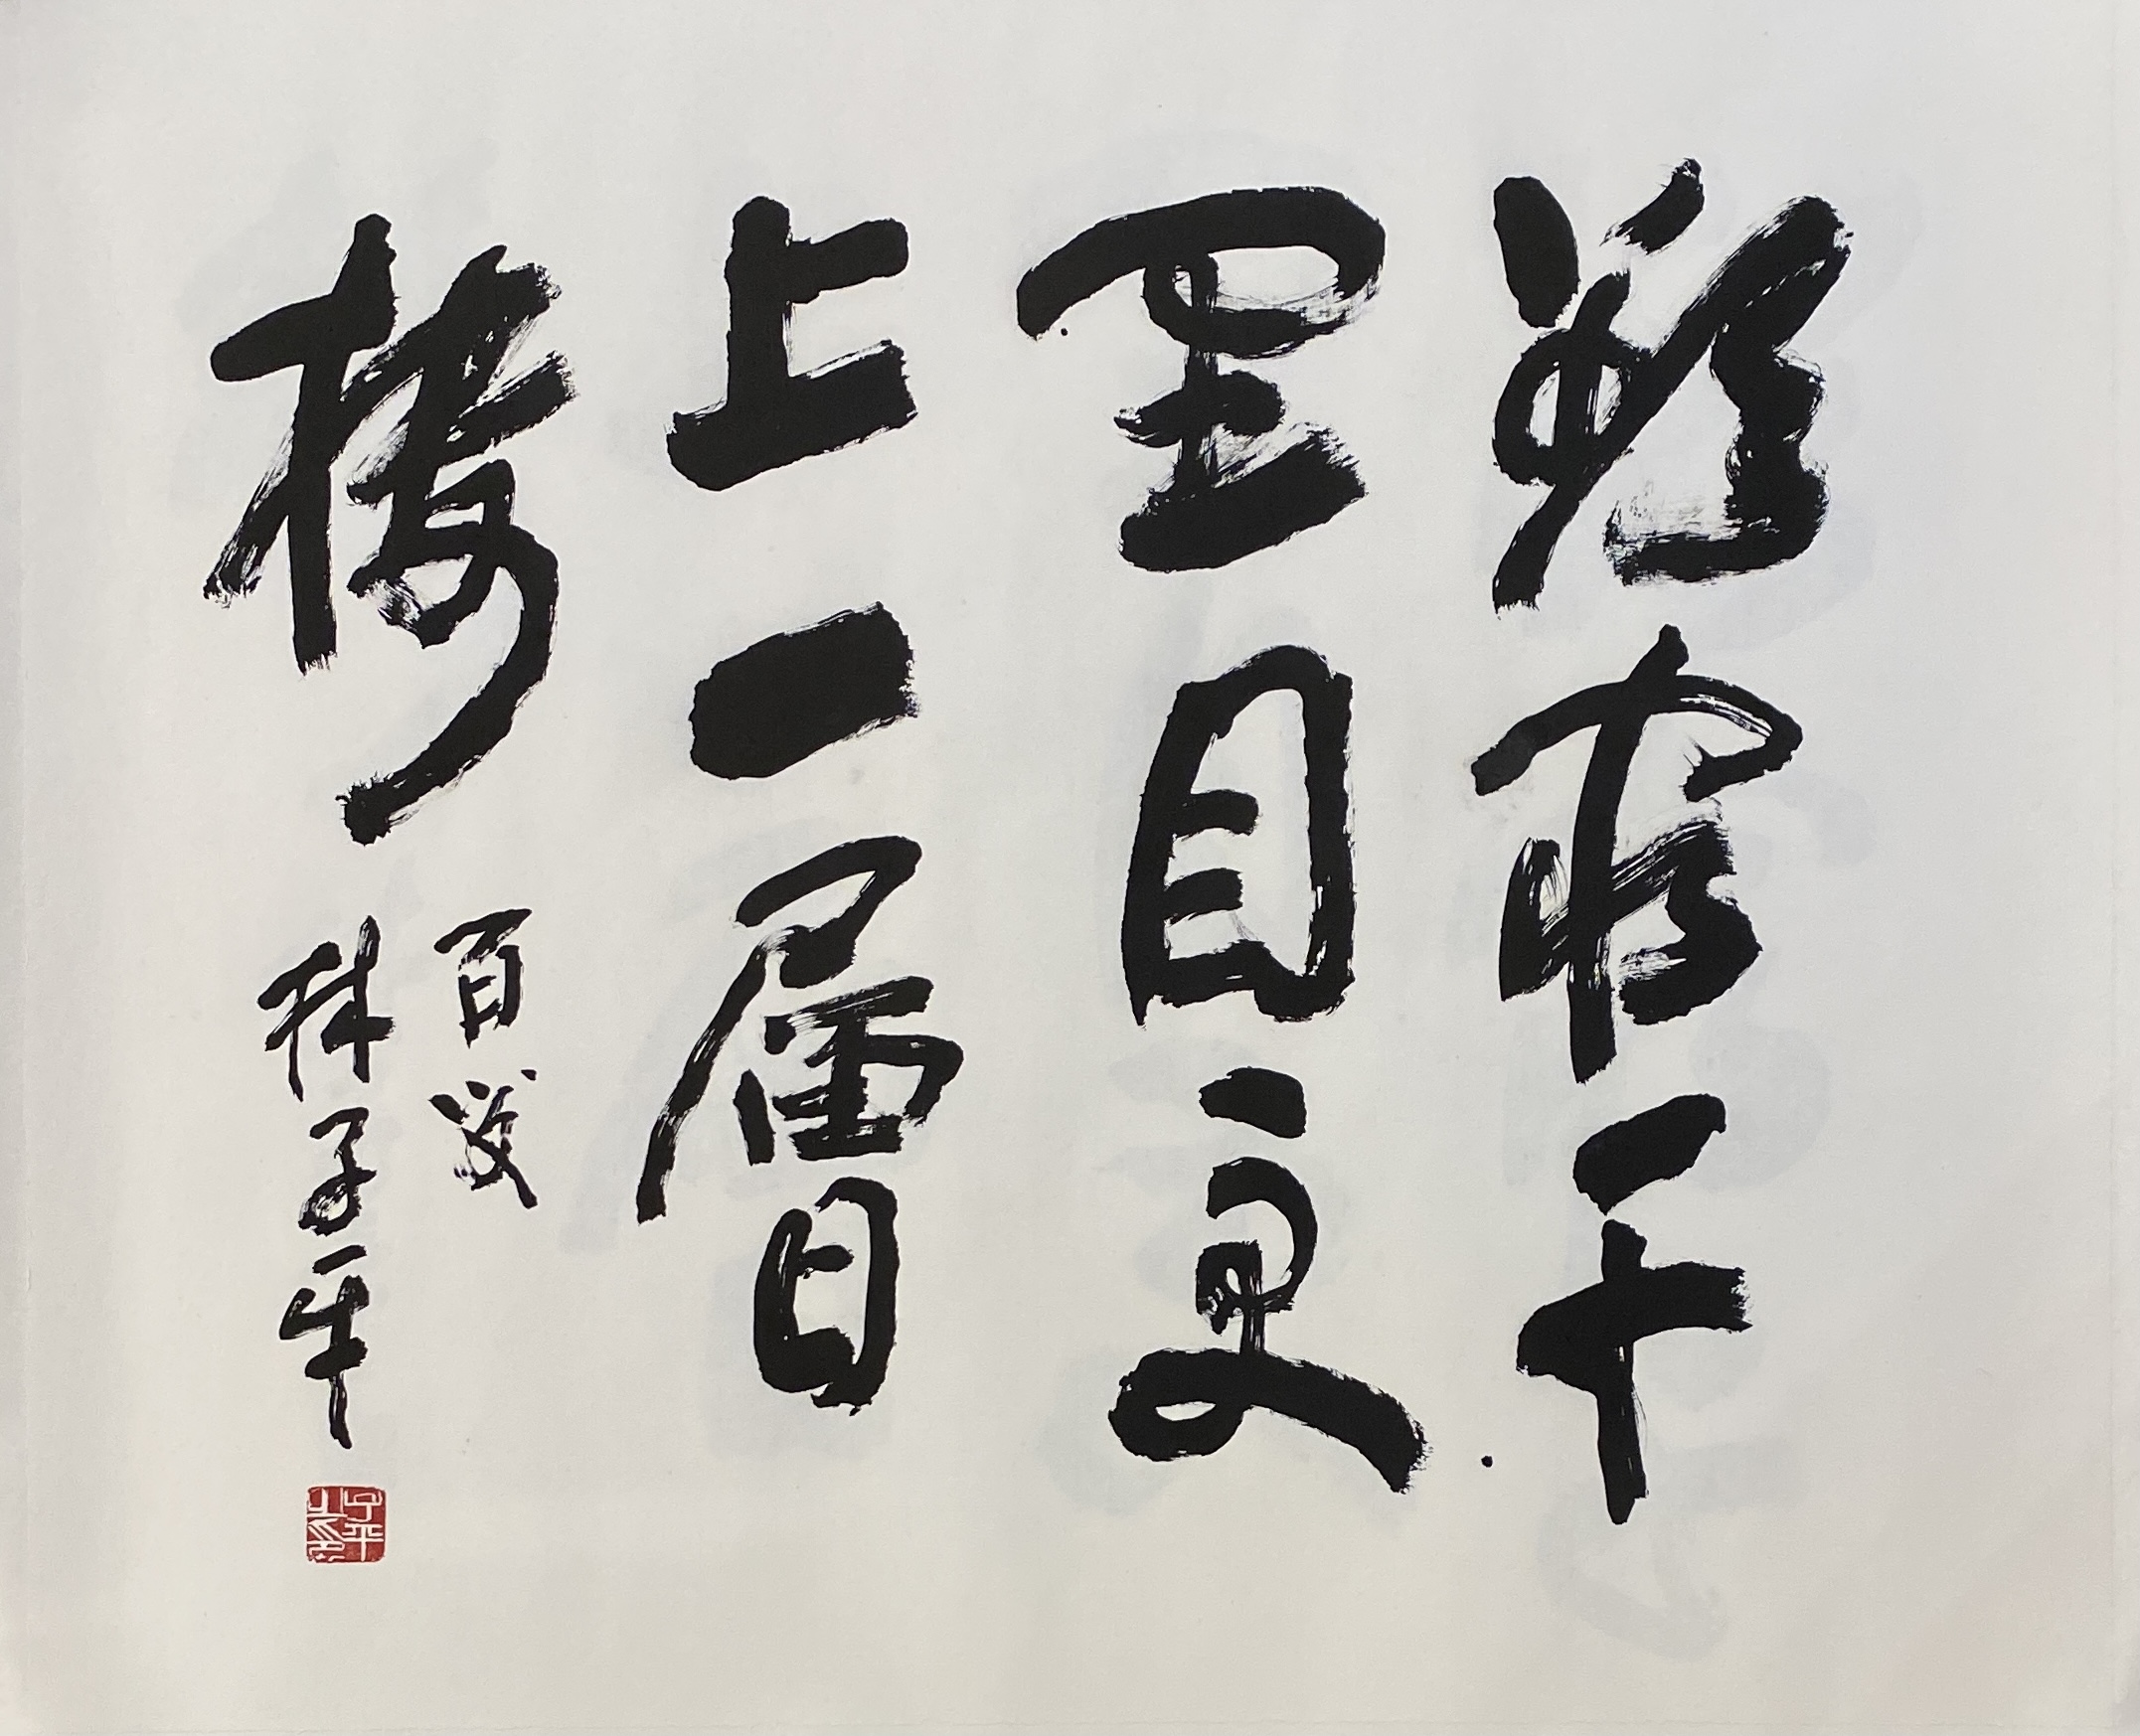 欲窮千
里目更
上一層
樓
百
林子平
子平之印